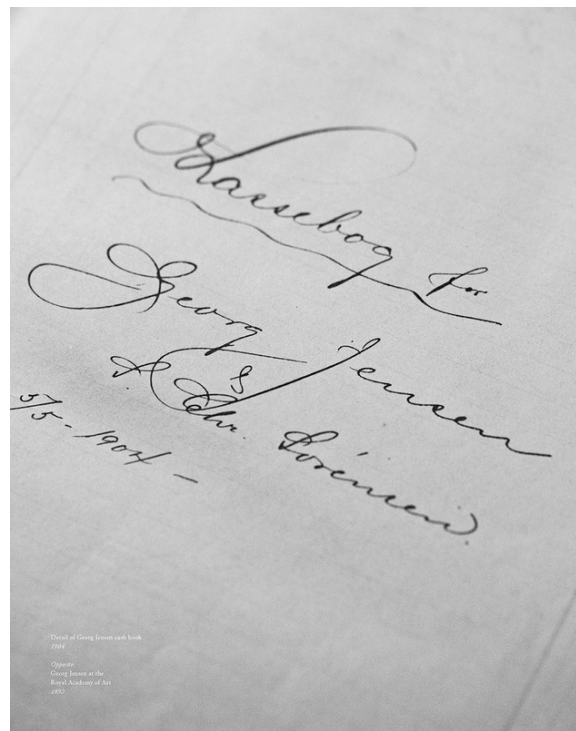 Kassebog for
Georg Jensen
&
A. Chr. Sørensen.
5/5-1904-
Detail of Georg Jensen cash book
1904
Opposite
Georg Jensen at the
Royal Academy of Art